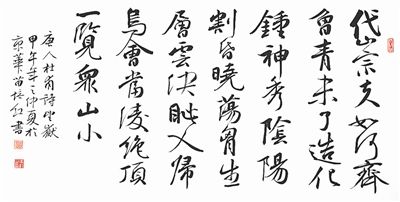 岱宗夫如何齊
魯青未了造化
鍾神秀陰陽
割昏曉蕩胷生
層雲決眦入歸
鳥會當凌絕頂
一覽眾山小
唐人杜甫詩望嶽
甲午年之仲夏於
京華苗書